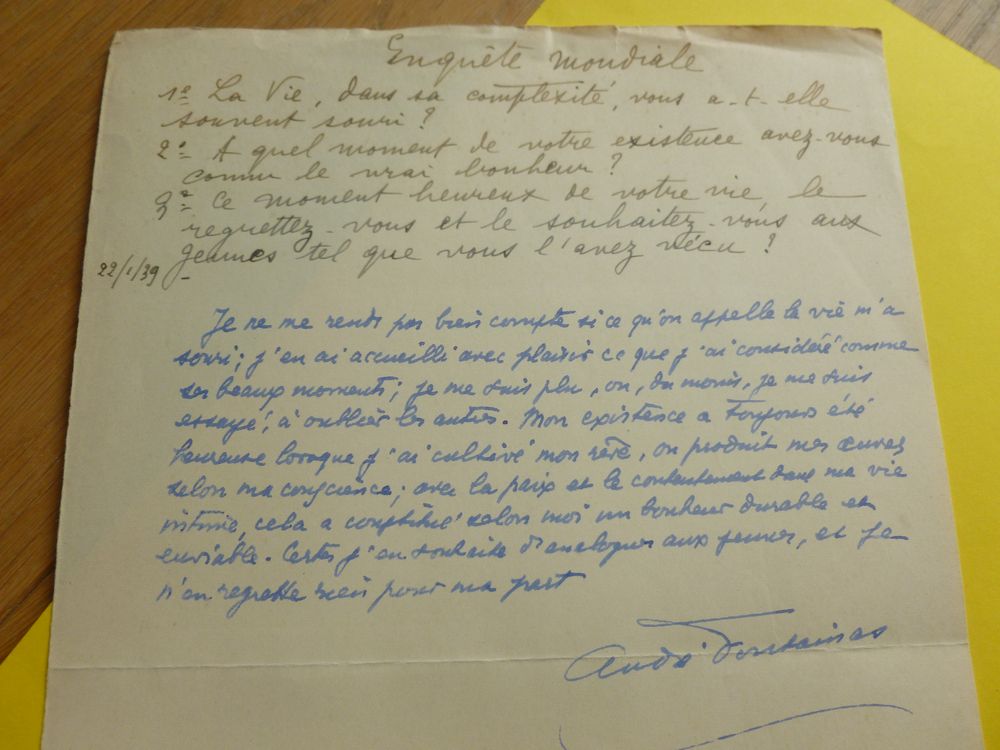 Enquête mondiale
1º La Vie, dans sa complexité, vous a-t-elle
souvent souri ?
2º A quel moment de votre existence avez-vous
connu le vrai bonheur ?
3º Ce moment heureux de votre vie le
regrettez-vous et le souhaitez-vous aux
jeunes tel que vous l'avez vécu ?
22/1/39
Je ne me rends pas bien compte si ce qu'on appelle la vie m'a
souri ; j'en ai accueilli avec plaisir ce que j'ai considéré comme
ses beaux moments ; je me suis plu, ou, du moins, je me suis
essayé, à oublier les autres. Mon existence a toujours été
heureuse lorsque j'ai cultivé mon rêve, ou produit mes œuvres
selon ma conscience ; avec la paix et le contentement dans ma vie
intime, cela a constitué selon moi un bonheur durable et
enviable. Certes j'en souhaite d'analogues aux jeunes, et je
n'en regrette rien pour ma part
André Fontainas